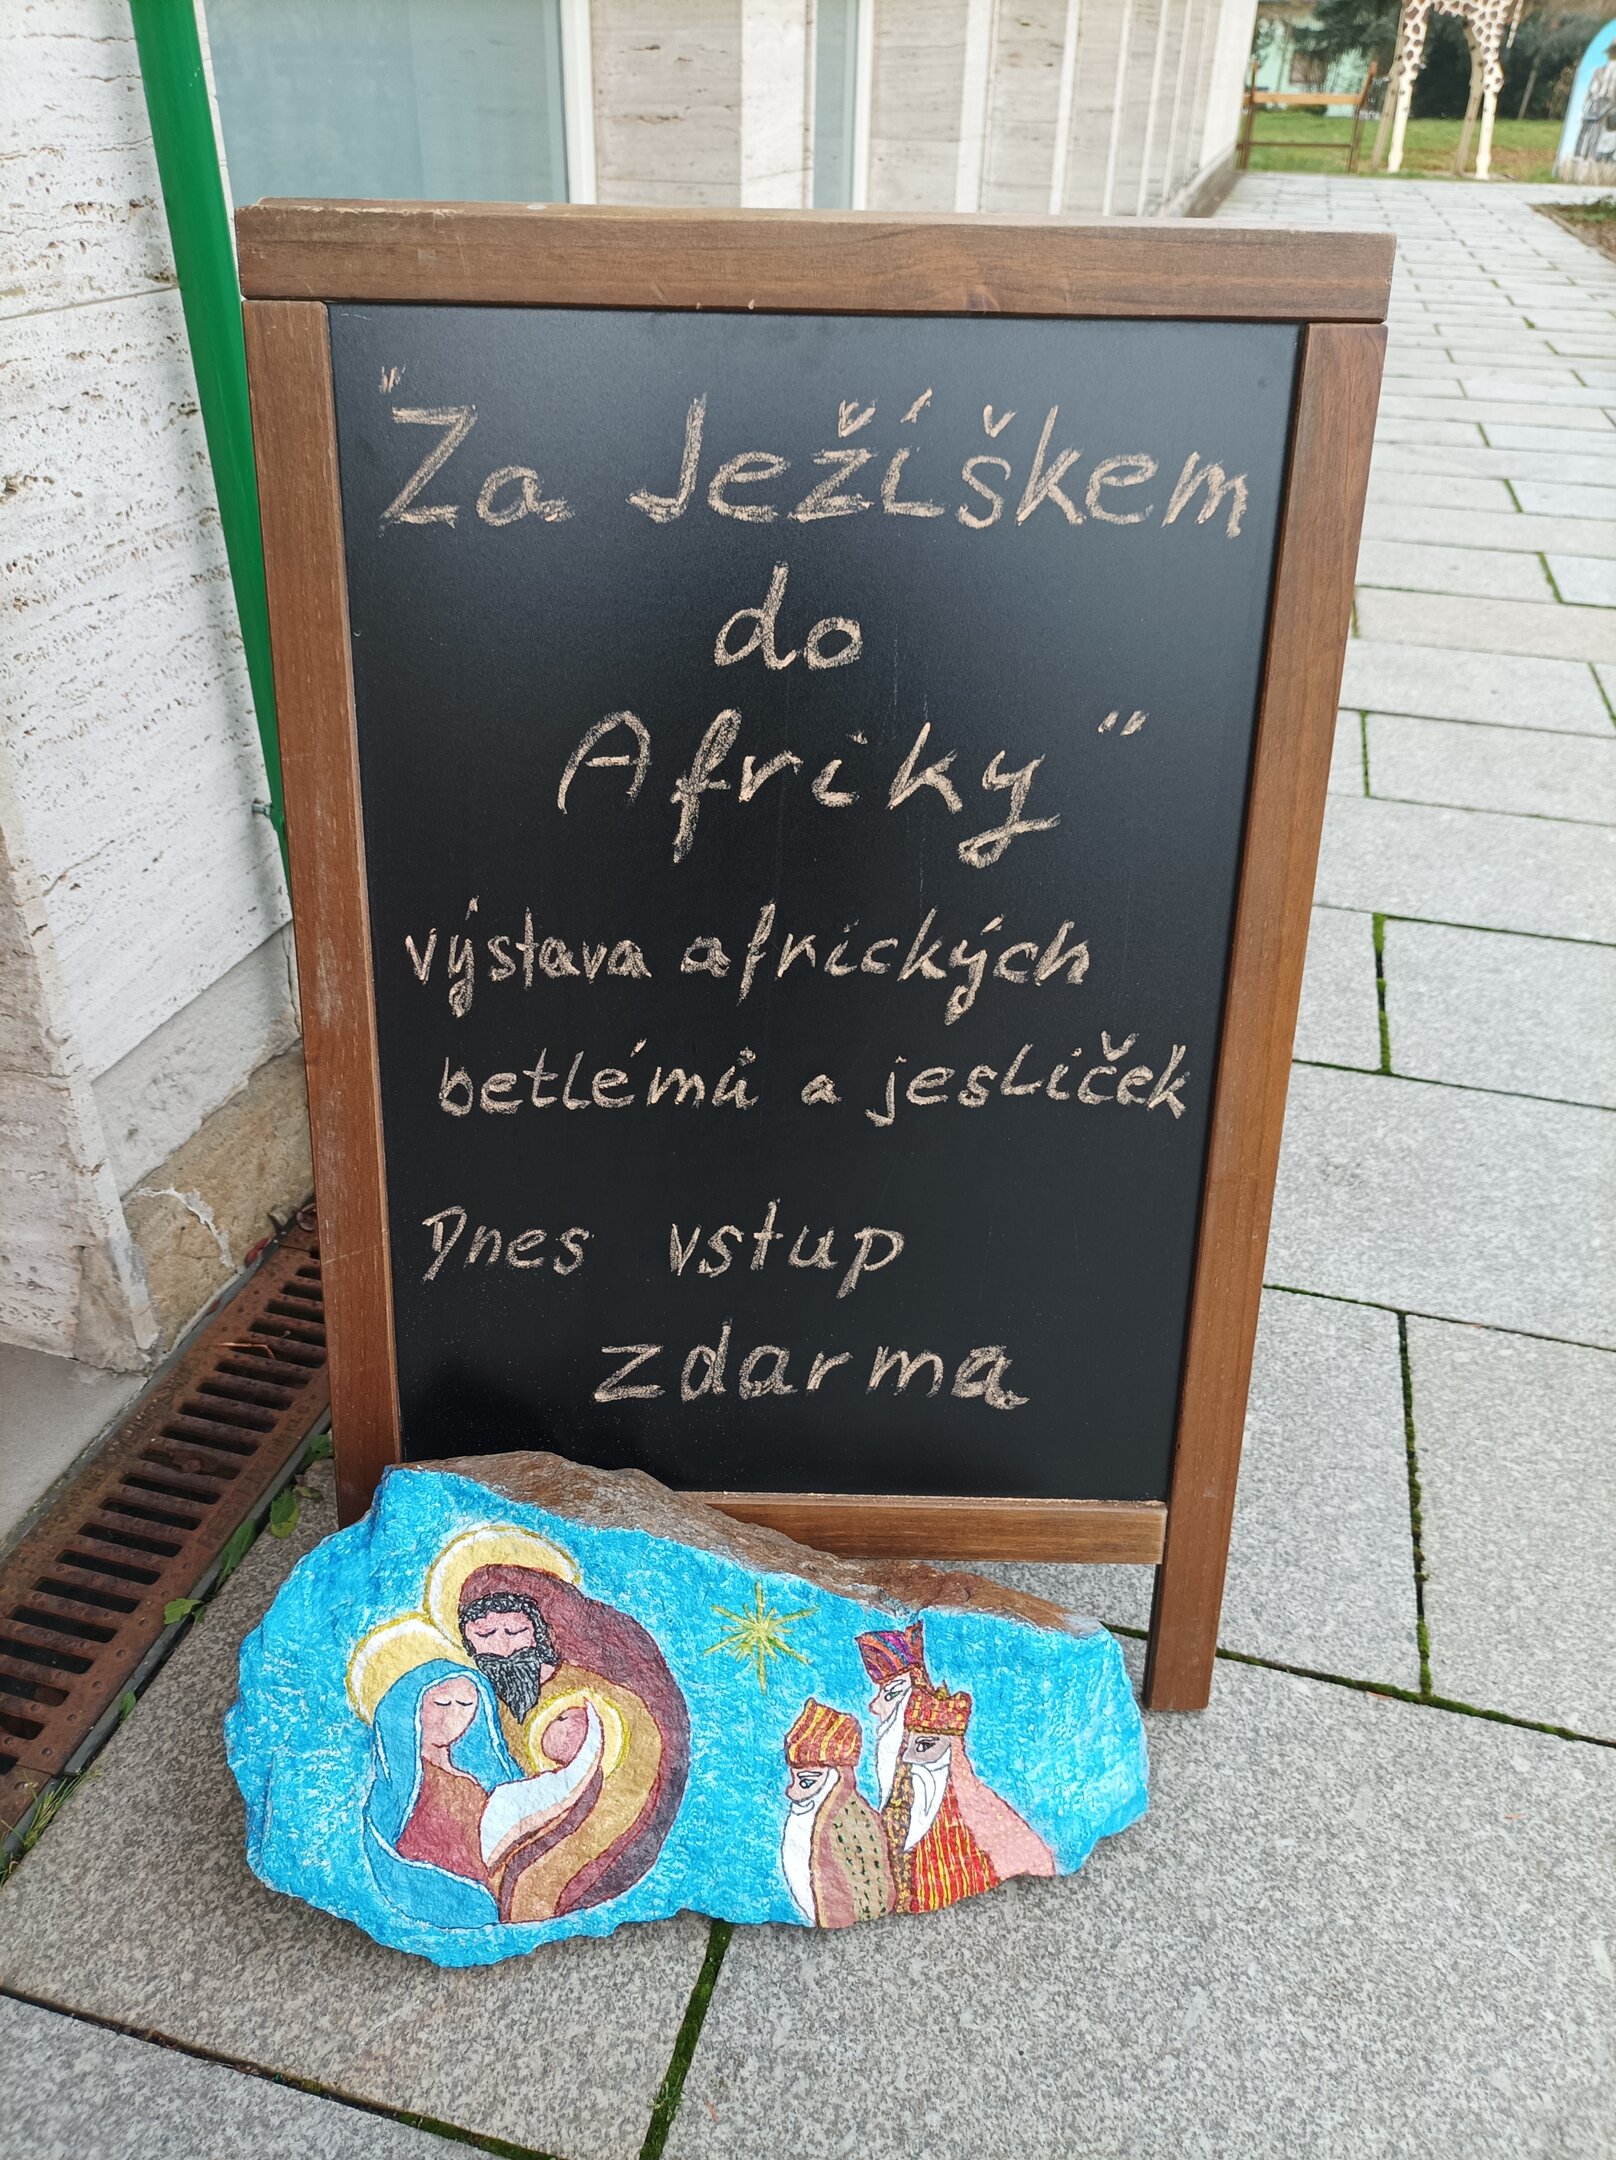 "Za Ježíškem
do
Afriky"
výstava afrických
betlémů a jesliček
Dnes vstup
zdarma